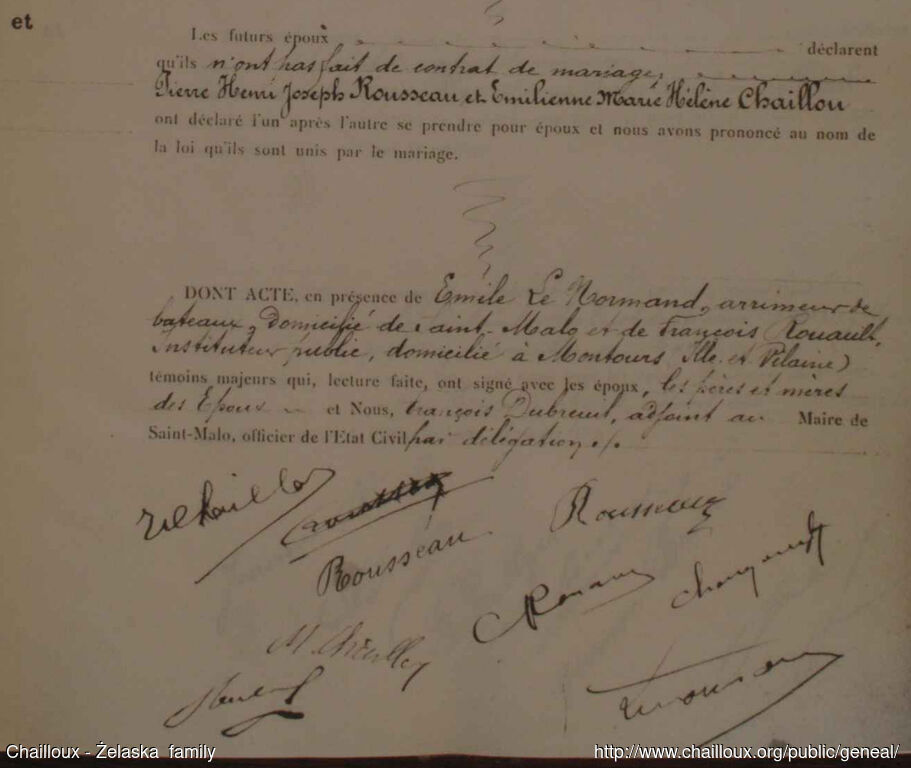 et
Les futurs époux déclarent
qu'ils n'ont pas fait de contrat de mariage,
Pierre Henri Joseph Rousseau et Emilienne Marie Hélène Chaillou
ont déclaré l'un après l'autre se prendre pour époux et nous avons prononcé au nom de
la loi qu'ils sont unis par le mariage.
DONT ACTE, en présence de Emile Le Normand, arrimeur de
bateaux, domicilié de Saint-Malo et de François Rouault,
Instituteur public, domicilié à Montours Ille et Vilaine)
témoins majeurs qui, lecture faite, ont signé avec les époux, les pères et mères
des Epoux et Nous, François Dubreuil, adjoint au Maire de
Saint-Malo, officier de l'Etat Civil par délégation ./.
Rousseau
Rousseau
Chailloux - Żelaska family
http://www.chailloux.org/public/geneal/